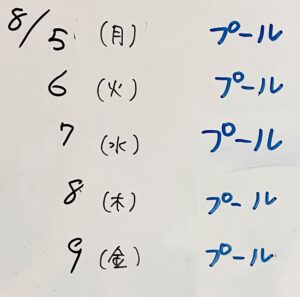 8/5 (月) プール
6 (火) プール
7 (水) プール
8 (木) プール
9 (金) プール